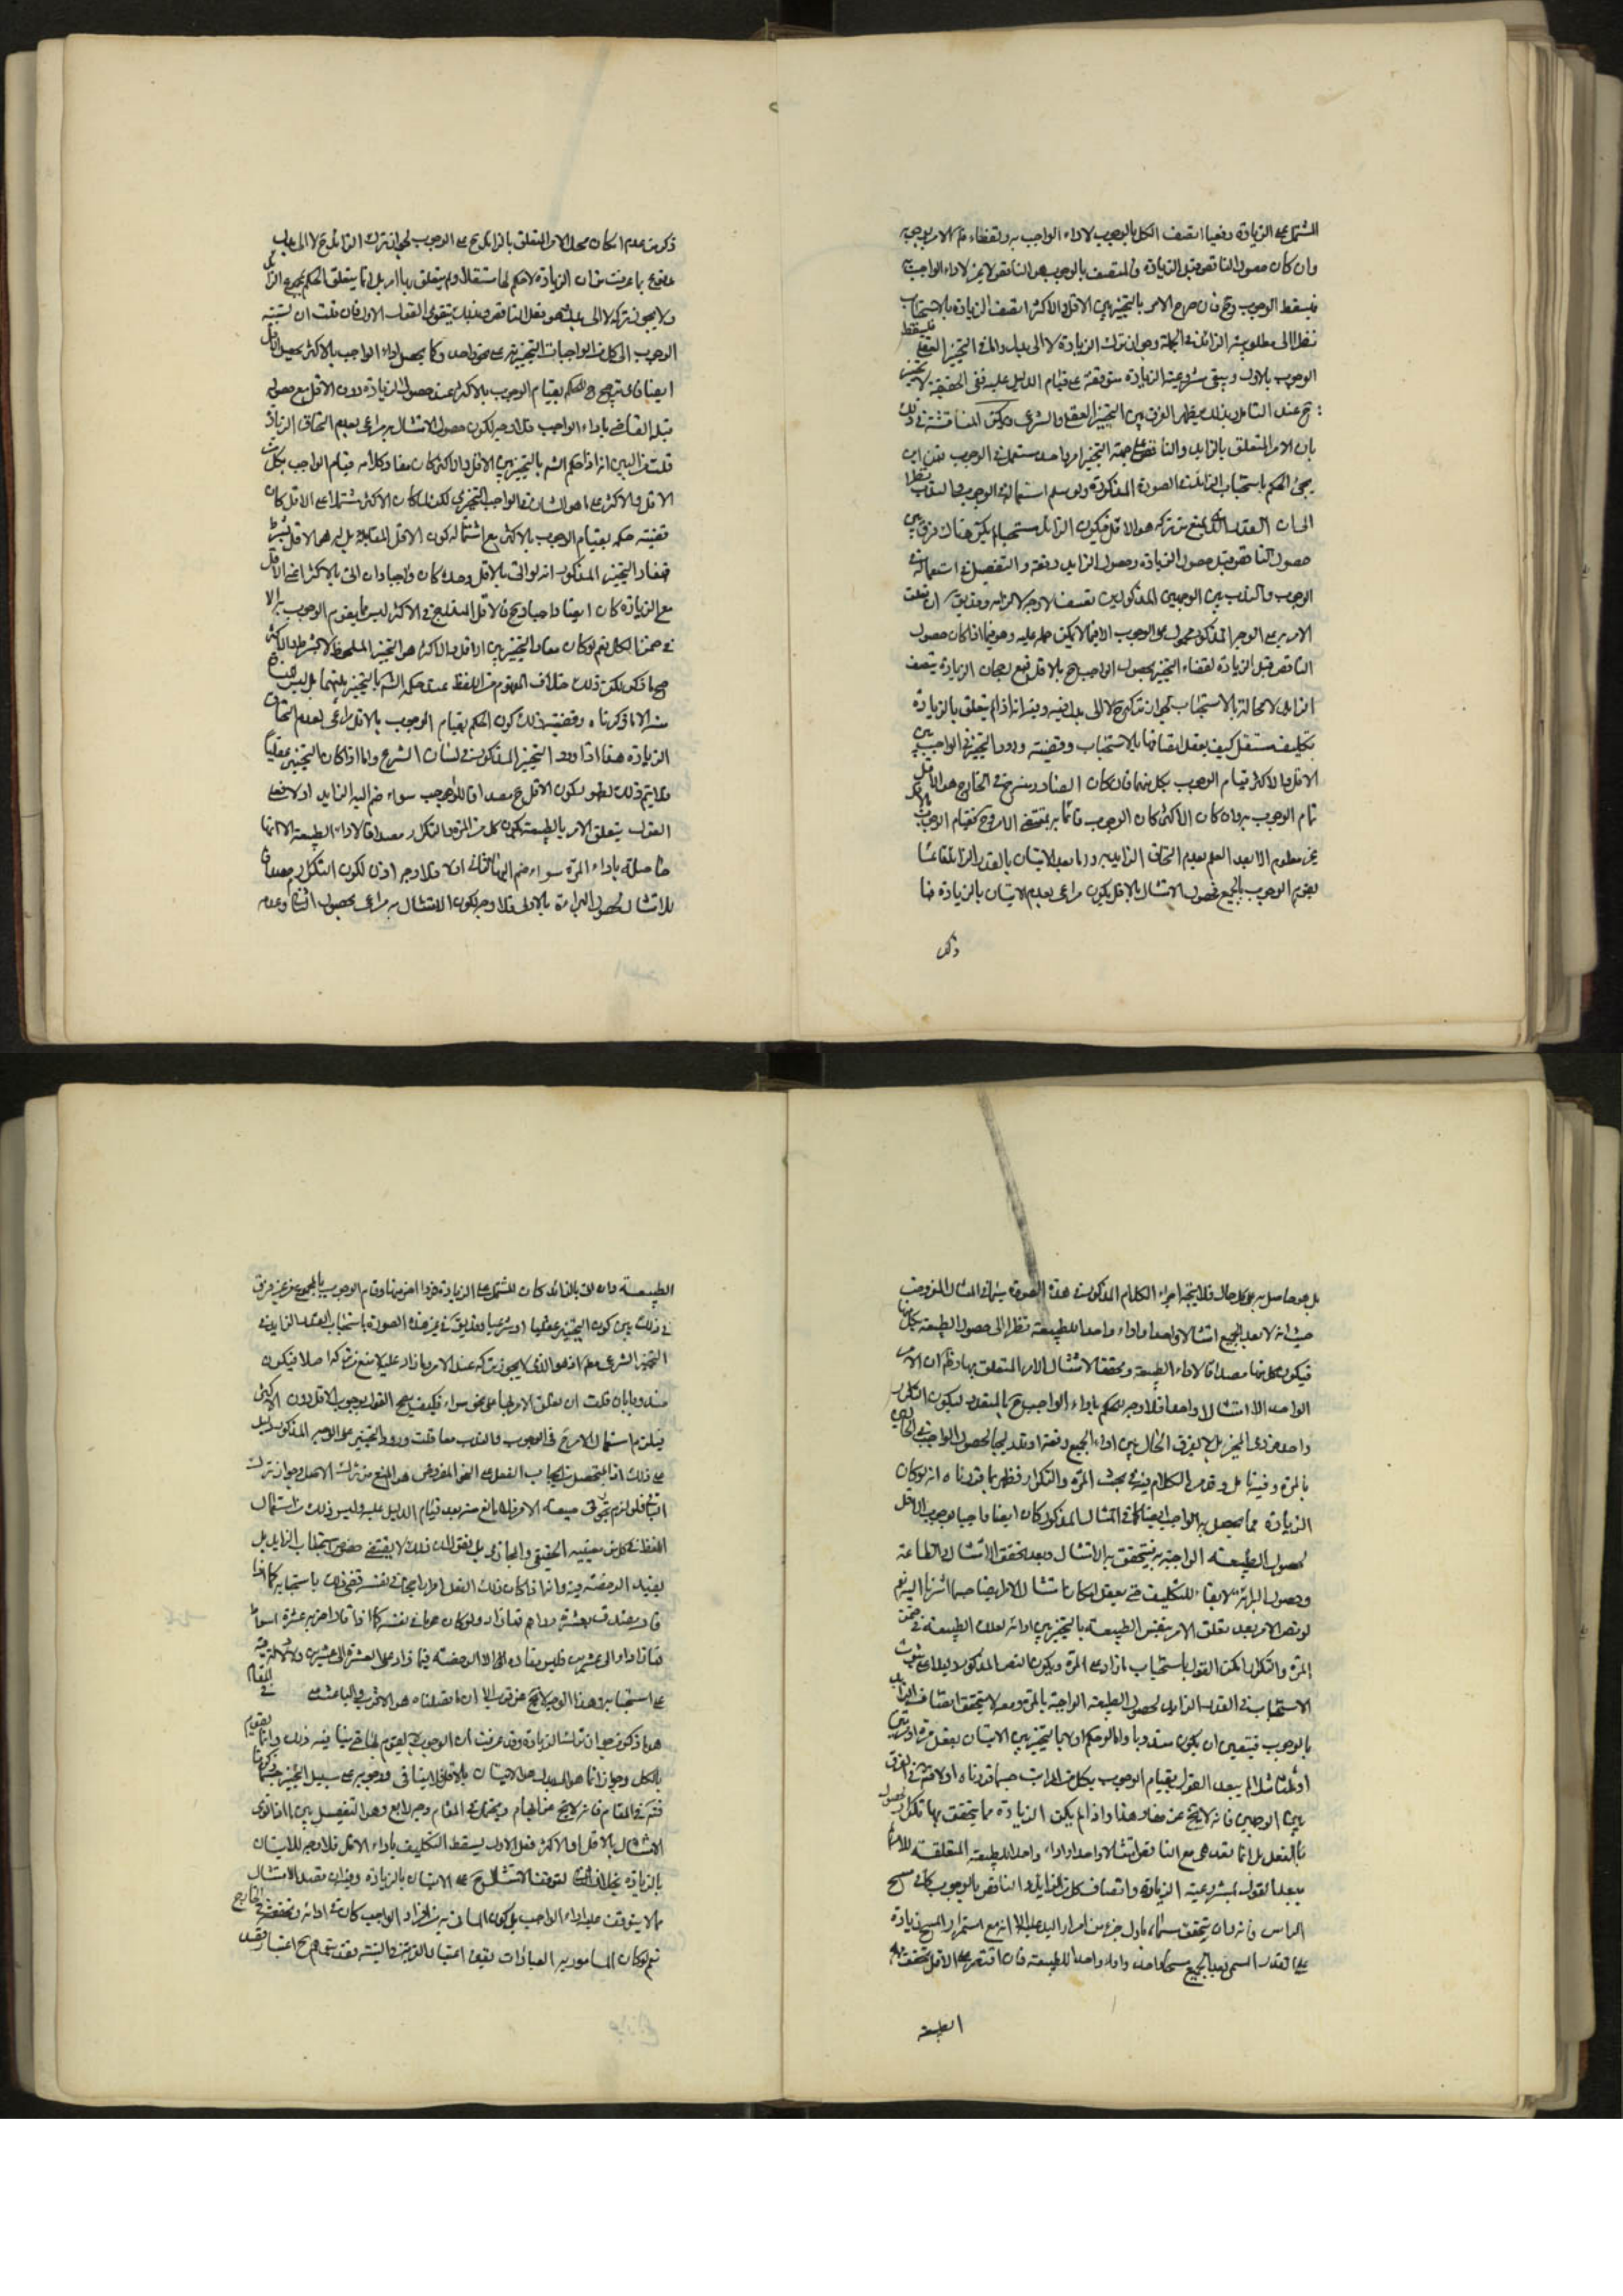 المشتمل على الزيادة دفعيا اتصف الكل بالوجوب لاداء الواجب به ولقضاء الامر بوجوبه
وان كان حصول الناقص قبل الزيادة فالمتصف بالوجوب هو الناقص لاداء الواجب به
فيسقط الوجوب وح فان صرح الامر بالتخيير بين الاقل والاكثر اتصف الزيادة بالاستحباب
نظرا الى مطلوبية الزائد في الجملة وجواز ترك الزيادة لا الى بدل واما في التخيير العقلي فيسقط
الوجوب بالاول ويبقى مشروعية الزيادة متوقفة على قيام الدليل عليه ففي الحقيقة لا تخيير
ح عند التامل وبذلك يظهر الفرق بين التخيير العقلي والشرعي ويمكن المناقشة في ذلك
بان الامر المتعلق بالزايد والناقص على جهة التخيير امر واحد مستعمل في الوجوب فمن اين
يجئ الحكم باستحباب الزائد في الصورة المذكورة ولو سلم استعماله في الوجوب والندب نظرا
الى ان القدر الذي يمنع من تركه هو الاقل فيكون الزائد مستحبا لم يكن هناك فرق بين
حصول الناقص قبل حصول الزيادة وحصول الزايد دفعة والتفصيل في استعماله في
الوجوب والندب بين الوجهين المذكورين تعسف لا وجه لالتزامه
الامر على الوجه المذكور محمول على الوجوب الا فيما لا يمكن حمله عليه وهو فيما اذا كان حصول
الناقص قبل الزيادة لقضاء التخيير بحصول الواجب ح بالاقل فمع رجحان الزيادة يتصف
الزايد لا محالة بالاستحباب لجواز تركه ح لا الى بدل وفيه انه اذا لم يتعلق بالزيادة
تكليف مستقل كيف يعقل اتصافها بالاستحباب وقضية ورود التخيير في الواجب بين
الاقل والاكثر قيام الوجوب بكل منهما فان كان الصادر منه في الخارج هو الاقل
قام الوجوب به وان كان الاكثر كان الوجوب قائما به بمقتضى الامر وح فقيام الوجوب بالاقل
غير معلوم الا بعد العلم بعدم التحاق الزايد به واما بعد الاتيان بالقدر الزائد فانما
يقوم الوجوب بالجميع فحصول الامتثال بالاقل يكون مراعى بعدم الاتيان بالزيادة فما
ذكر
ذكر من عدم امكان حمل الامر المتعلق بالزايد ح على الوجوب لجواز ترك الزايد ح لا الى بدل
مدفوع بما عرفت من ان الزيادة لا حكم لها مستقلا ولم يتعلق بها امر بل انما يتعلق الحكم بمجموع الزائد
ولا يجوز تركه لا الى بدل هو فعل الناقص وبذلك يتقوى القول الاول فان قلت ان نسبة
الوجوب الى كل من الواجبات التخييرية على نحو واحد وكما يحصل اداء الواجب بالاكثر يحصل بالاقل
ايضا فاي ترجيح ح للحكم بقيام الوجوب بالاكثر عند حصول الزيادة دون الاقل مع حصول
قبله القاضي باداء الواجب فلا وجه لكون حصول الامتثال به مراعى بعدم التحاق الزيادة
قلت من البين انه اذا حكم الشرع بالتخيير بين الاقل والاكثر كان مفاد كلامه قيام الواجب بكل من
الاقل والاكثر على ما هو الشان في الواجب التخييري لكن لما كان الاكثر مشتملا على الاقل كان
قضية حكمه بقيام الوجوب بالاكثر مع اشتماله كون الاقل المقابل له هو الاقل بشرط
فمفاد التخيير المذكور انه لو اتى بالاقل وحده كان واجبا وان اتى بالاكثر اعني الاقل
مع الزيادة كان ايضا واجبا وح فالاقل المندرج في الاكثر ليس مما يقوم الوجوب به الا
في ضمن الكل نعم لو كان مفاد التخيير بين الاقل والاكثر هو التخيير الملحوظ لا بشرط والاكثر
صح ما ذكر لكن ذلك خلاف المفهوم من اللفظ عند حكم الشرع بالتخيير بينهما بل ليس المفهوم
منه الا ما ذكرناه وقضية ذلك كون الحكم بقيام الوجوب بالاقل مراعى بعدم التحاق
الزيادة هذا اذا ورد التخيير المذكور في لسان الشرع واما اذا كان التخيير عقليا
فلا يتم ذلك لظهور كون الاقل ح مصداقا للواجب سواء ضم اليه الزايد او لا فعلى
القول بتعلق الامر بالطبيعة يكون كل من المرة والتكرار مصداقا لاداء الطبيعة الا انها
حاصلة باداء المرة سواء ضم اليها الثاني او لا فلا وجه اذن لكون التكرار مصداقا
للامتثال لحصول البراءة بالاول فلا وجه لكون الامتثال به مراعى بحصول الثاني وعدمه
بل هو حاصل به على كل حال فلا يتجه اجراء الكلام المذكور في هذه الصورة
حيث انه لا يعد الجميع امتثالا واحدا واداء واحدا للطبيعة نظرا الى حصول الطبيعة بكل منها
فيكون كل منها مصداقا لاداء الطبيعة ومحققا لامتثال الامر المتعلق بها وظ ان الامر
الواحد الا امتثالا واحدا فلا وجه للحكم باداء الواجب ح بالمتعدد ليكون التكرار
واحد فردي المخير بل لا يفرق الحال بين اداء الجميع دفعة او تدريجا لحصول الواجب
بالمرة وفيه تامل وقد مر الكلام فيه في بحث المرة والتكرار فظهر بما قررناه انه لو كان
الزيادة مما يحصل به الواجب ايضا كما في المثال المذكور كان ايضا واجبا بوجوب الاقل
لحصول الطبيعة الواجبة به فيتحقق به الامتثال وبعد تحقق الامتثال والطاعة
وحصول البراءة لا بقاء للتكليف حتى يعقل امكان امتثال الامر ايضا حسبما اشرنا اليه نعم
لو نص الامر بعد تعلق الامر بنفس الطبيعة بالتخيير بين ادائه لتلك الطبيعة في ضمن
المرة والتكرار امكن القول باستحباب ما زاد على المرة ويكون النص المذكور دليلا على ثبوت
الاستحباب في القدر الزائد لحصول الطبيعة الواجبة بالمرة ومعه لا يتحقق اتصاف الزايد
بالوجوب فيتعين ان يكون مندوبا واما لو حكم اولا بالتخيير بين الاتيان بفعل مرة او مرتين
او ثلثا مثلا لم يبعد القول بقيام الوجوب بكل من المراتب حسبما قررناه اولا
بين الوجهين فانه لا يخ عن خفاء هذا واذا لم يكن الزيادة مما يتحقق بها تكرار
بالفعل بل انما تعد هي مع الناقص امتثالا واحدا واداء واحدا للطبيعة المتعلقة للامر
يبعد القول بمشروعية الزيادة واتصاف كل من الزايد والناقص بالوجوب كما في مسح
الراس فانه وان تحقق مسماه باول جزء من امرار اليد عليه الا انه مع استمرار المسح زيادة
على القدر المسمى يعد الجميع مسحا واحدا واداء واحدا للطبيعة فان اقتصر على الاقل تحقق به
الطبيعة
الطبيعة وان اتى بالزائد كان المشتمل على الزيادة فردا اخر منها وقام الوجوب بالمجموع من غير فرق
في ذلك بين كون التخيير عقليا او شرعيا وقد يق في غير هذه الصورة باستحباب القدر الزايد في
التخيير الشرعي معللا اذ هو الذي لا يجوز تركه عند الامر وما زاد عليه لا منع من تركه اصلا فيكون
مندوبا فان قلت ان تعلق الامر بهما على نحو سواء فكيف يصح القول بوجوب الاقل دون الاكثر
فيلزم استعمال الامر ح في الوجوب والندب معا قلت ورود التخيير على الوجه المذكور دليل
على ذلك اذ المتحصل من ايجاب الفعل على النحو المفروض هو المنع من ترك الاقل وجواز ترك
صيغة الامر فلا مانع منه بعد قيام الدليل عليه وليس ذلك من استعمال
اللفظ في كل من معنييه الحقيقي والمجازي بل نقول ان ذلك لا يقتضي خصوص استحباب الزايد بل
يفيد الرخصة فيه وانما اذا كان ذلك الفعل امرا راجحا في نفسه قضى ذلك باستحبابه كما اذا
قال تصدق بعشرة دراهم فما زاد ولو كان مباحا في نفسه كما اذا قال اضربه عشرة اسواط
فما زاد او الى عشرين فليس مفاده الا الرخصة فيما زاد على العشرة الى عشرين ولا دلالة فيه
على استحبابه وهذا الوجه لا يخ عن قرب الا ان ما فصلناه هو الاقرب والباعث في المقام
هو ما ذكر من جواز ترك الزيادة وقد عرفت ان الوجوب لا يقوم بها حتى ينافيه ذلك وانما يقوم
بالكل وجوازه انما هو الى بدل هو الاتيان بالاقل فلا ينافي وجوبه على سبيل التخيير حسبما ذكرنا
فت في المقام فانه لا يخ عن ابهام ويحتمل في المقام وجه رابع وهو التفصيل بين ما اذا نوى
الامتثال بالاقل او الاكثر فعلى الاول يسقط التكليف باداء الاقل فلا وجه للاتيان
بالزيادة بخلاف الثاني لتوقف الامتثال ح على الاتيان بالزيادة وفيه ان قصد الامتثال
مما لا يتوقف عليه اداء الواجب بل كون الماتي به من افراد الواجب كاف في ادائه وتحققه في الخارج
نعم لو كان المامور به من العبادات بقي اعتبار القربة والنية فقد يتوهم ح اعتبار قصد